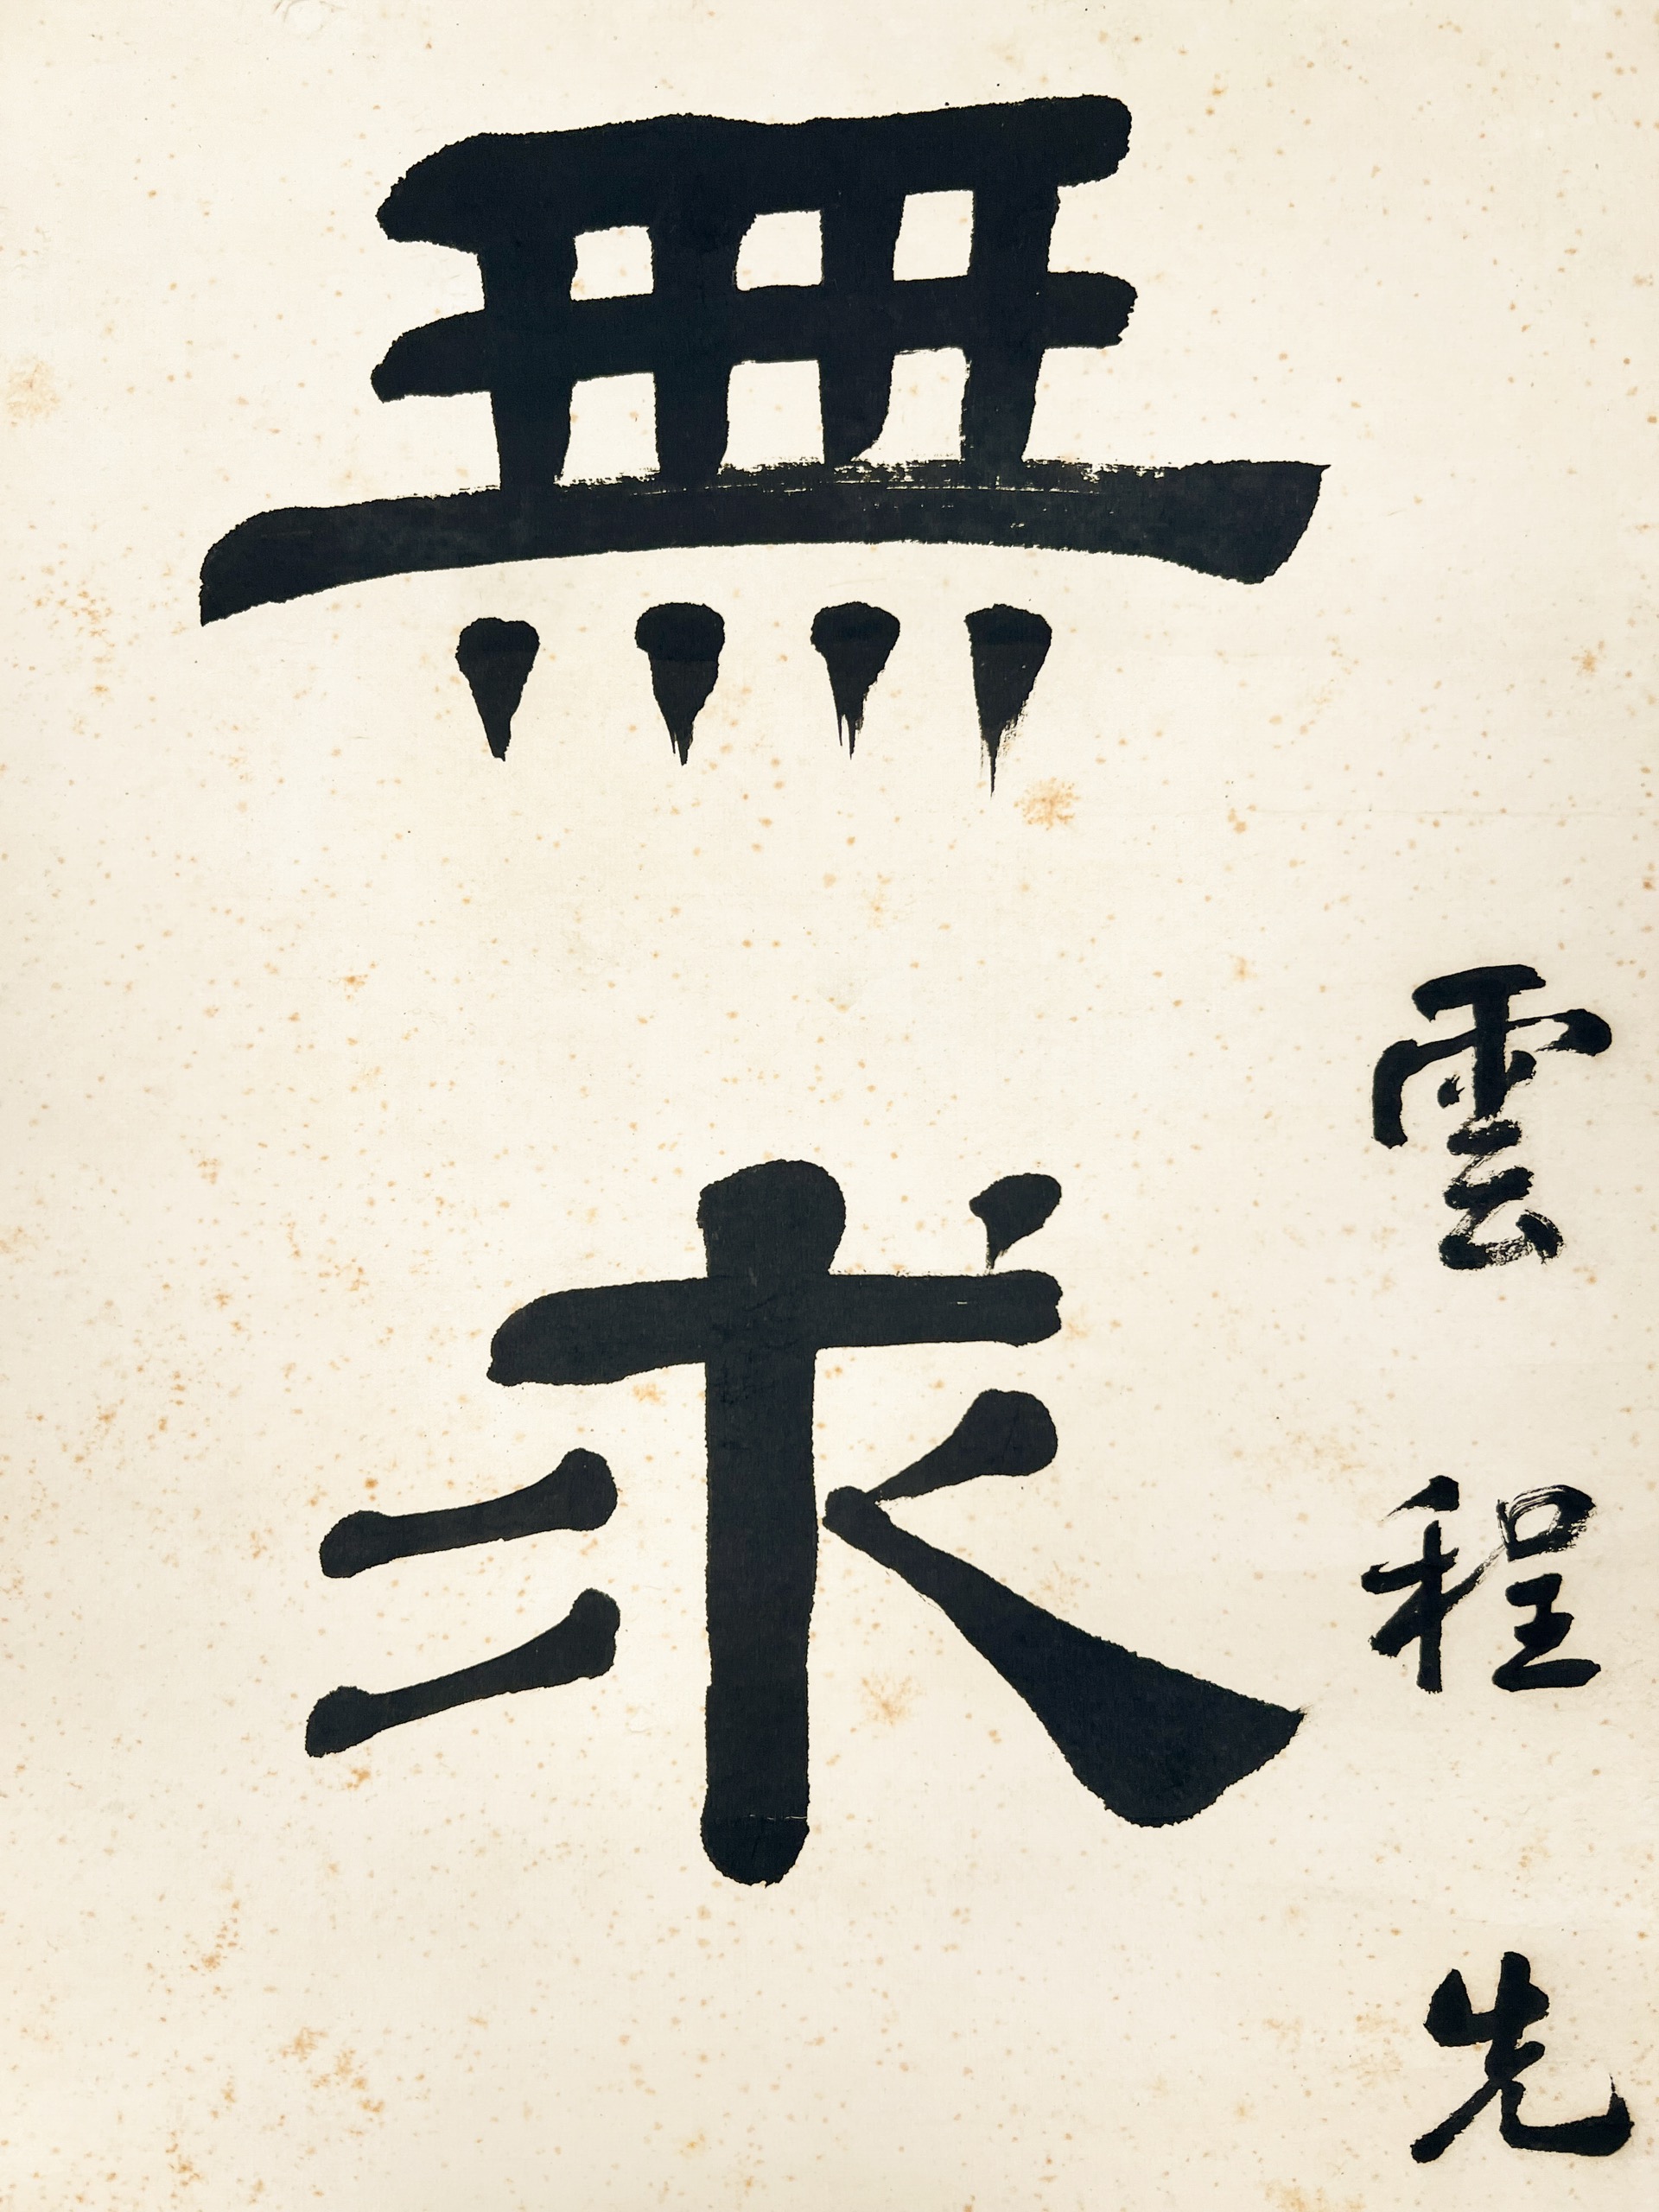 雲程先
無求